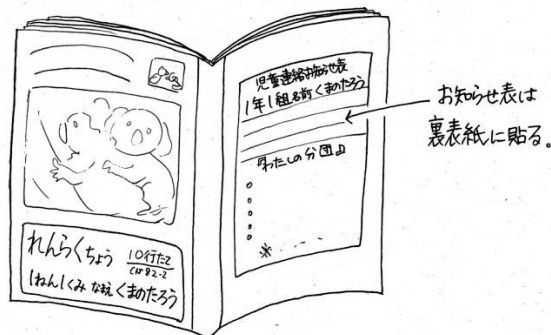 れんらくちょう
10行たて
1ねん1くみ なまえ くまのたろう
児童連絡お知らせ表
1年1組名前くまのたろう
『わたしの分団』
※
お知らせ表は
裏表紙に貼る。